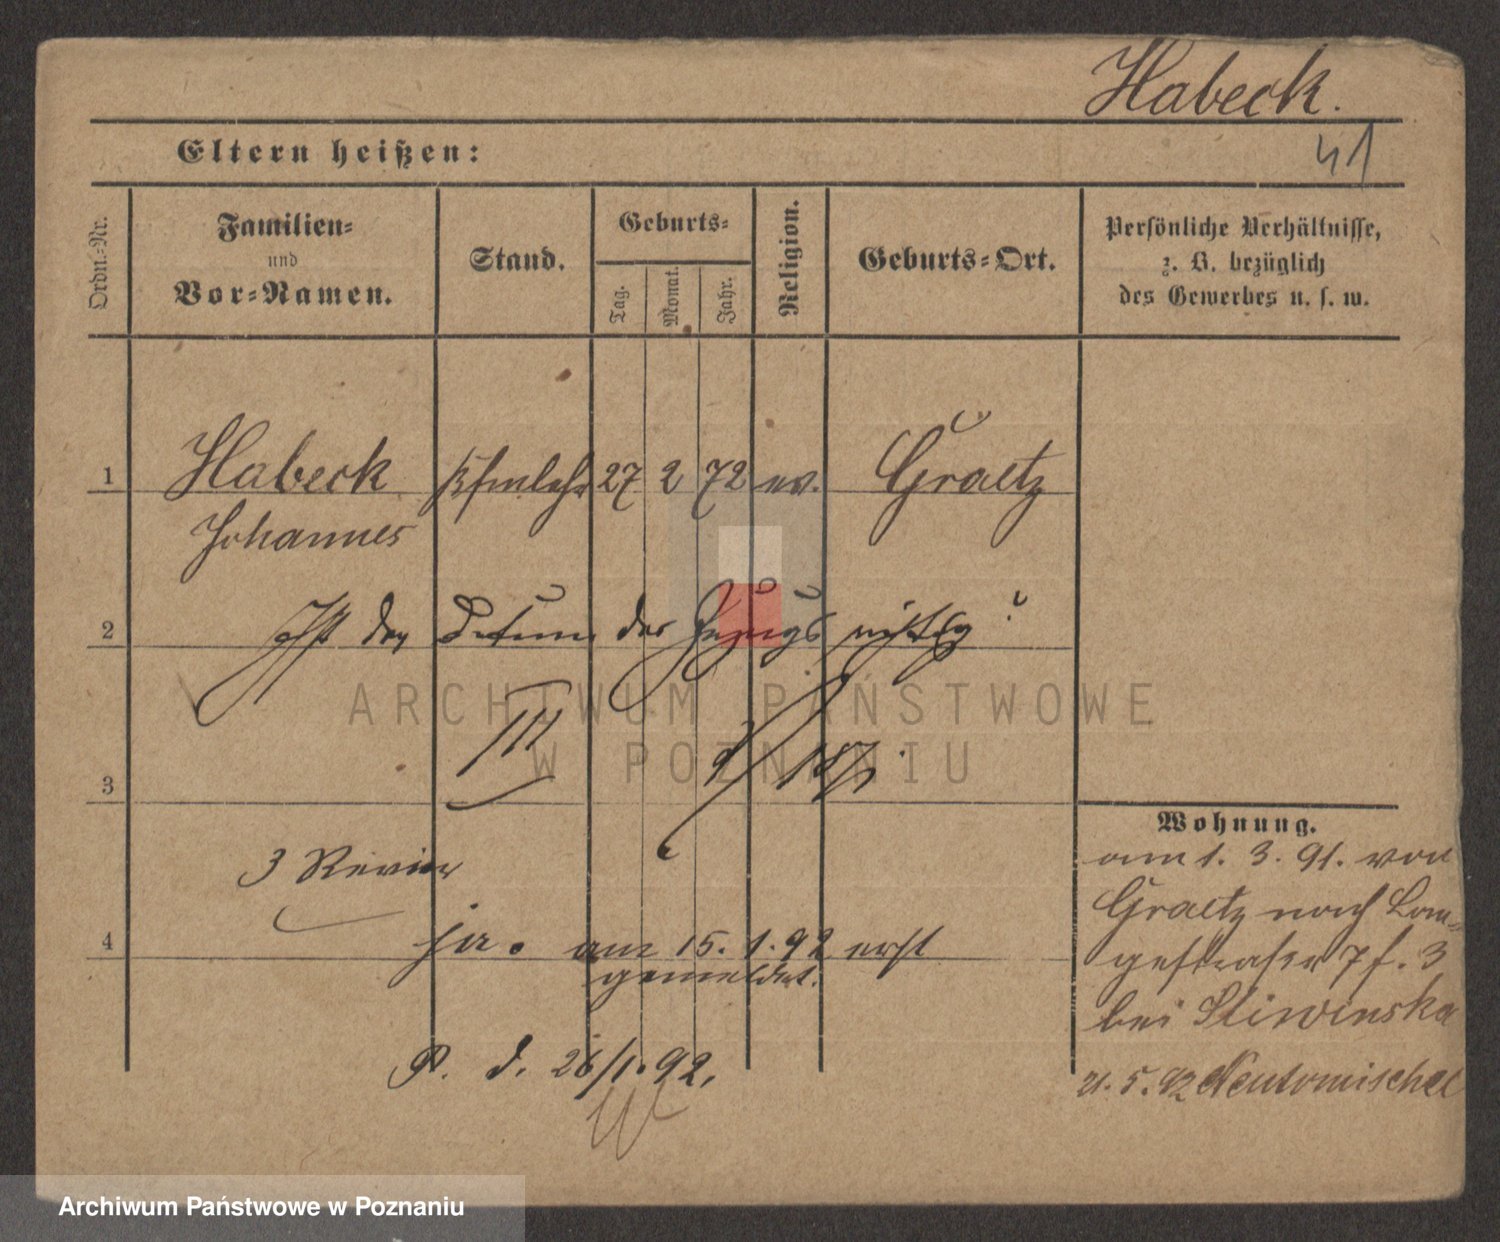 Habeck.
41
Eltern heißen:
Ordn.-Nr.
Familien-
und
Vor-Namen.
Stand.
Geburts-
Tag.
Monat.
Jahr.
Religion.
Geburts-Ort.
Persönliche Verhältnisse,
z. B. bezüglich
des Gewerbes u. s. w.
1 Habeck Kfmlehr 27 2 72 ev. Graetz
Johannes
2 Ist das Datum des Zuzugs richtig?
ARCHIWUM PAŃSTWOWE
W POZNANIU
III
3
3 Revier
4 ja. am 15. 1. 92 erst
gemeldet.
P. d. 26/1. 92.
Wohnung.
am 1. 3. 91. von
Graetz nach Lan-
gestrasse 7 f. 3
bei Sliwinska
21. 5. 92 Neutomischel
Archiwum Państwowe w Poznaniu